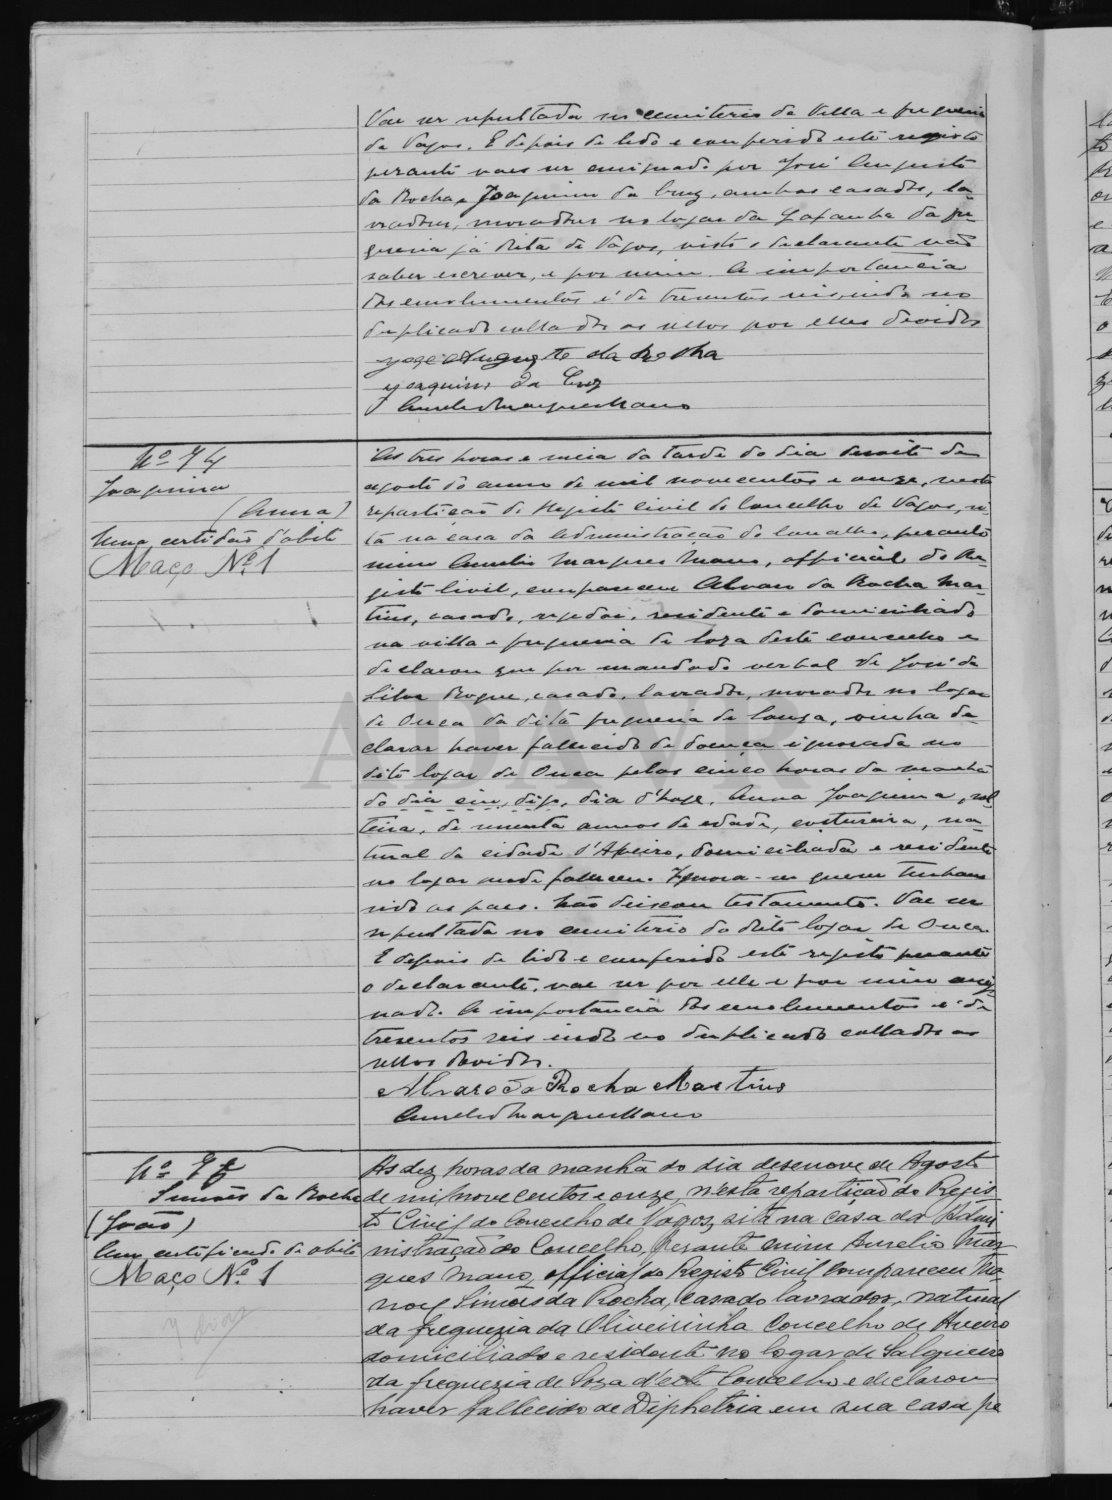 Vae ser sepultada no cemiterio da Villa e freguesia
de Vagos. E depois de lido e conferido este registo
perante vaes ser assignado por José Augusto
da Rocha e Joaquim da Cruz, ambos casados, la-
vradores, moradores no logar da Gafanha da fre-
guesia já dita de Vagos, visto o declarante não
saber escrever, e por mim. A importancia
dos emolumentos é de tresentos reis indo no
duplicado collados os sellos por elles devidos
José Augusto da Rocha
Joaquim da Cruz
Aurelio Marques Mano
Nº 74
Joaquina
(Anna)
Uma certidão d'obito
Maço Nº 1
As tres horas e meia da tarde do dia desoito de
agosto do anno de mil novecentos e onze, nesta
repartição do Registo Civil do Concelho de Vagos, si-
ta na casa da Administração do Concelho, perante
mim Aurelio Marques Mano, official do Re-
gisto Civil, compareceu Alvaro da Rocha Mar-
tins, casado, regedor, residente e domiciliado
na villa e freguesia de Soza deste concelho e
declarou que por mandado verbal de José da
Silva Roque, casado, lavrador, morador no logar
de Ouca da dita freguesia de Souza, vinha de-
clarar haver fallecido de doença ignorada no
dito logar de Ouca pelas cinco horas da manhã
do dia em, digo, dia d'hoje, Anna Joaquina, sol-
teira, de noventa annos de edade, costureira, na-
tural da cidade d'Aveiro, domiciliada e residente
no logar onde falleceu. Ignora-se quem tenham
sido os paes. Não deixou testamento. Vae ser
sepultada no cemiterio do dito logar de Ouca.
E depois de lido e conferido este registo perante
o declarante, vae ser por elle e por mim assig-
nado. A importancia dos emolumentos é de
tresentos reis indo no duplicado collados os
sellos devidos.
Alvaro da Rocha Martins
Aurelio Marques Mano
Nº 75
Simões da Rocha
(João)
Um certificado de obito
Maço Nº 1
As dez horas da manhã do dia desenove de Agosto
de mil novecentos e onze, n'esta repartição do Regis-
to Civil do Concelho de Vagos, sita na casa da Admi-
nistração do Concelho, perante mim Aurelio Mar-
ques Mano, official do Registo Civil compareceu Ma-
noel Simões da Rocha, casado lavrador, natural
da freguezia da Oliveirinha Concelho de Aveiro
domiciliado e residente no logar de Salgueiro
da freguezia de Soza d'este Concelho e declarou
haver fallecido de Diphetria em sua casa pe
ADAVR